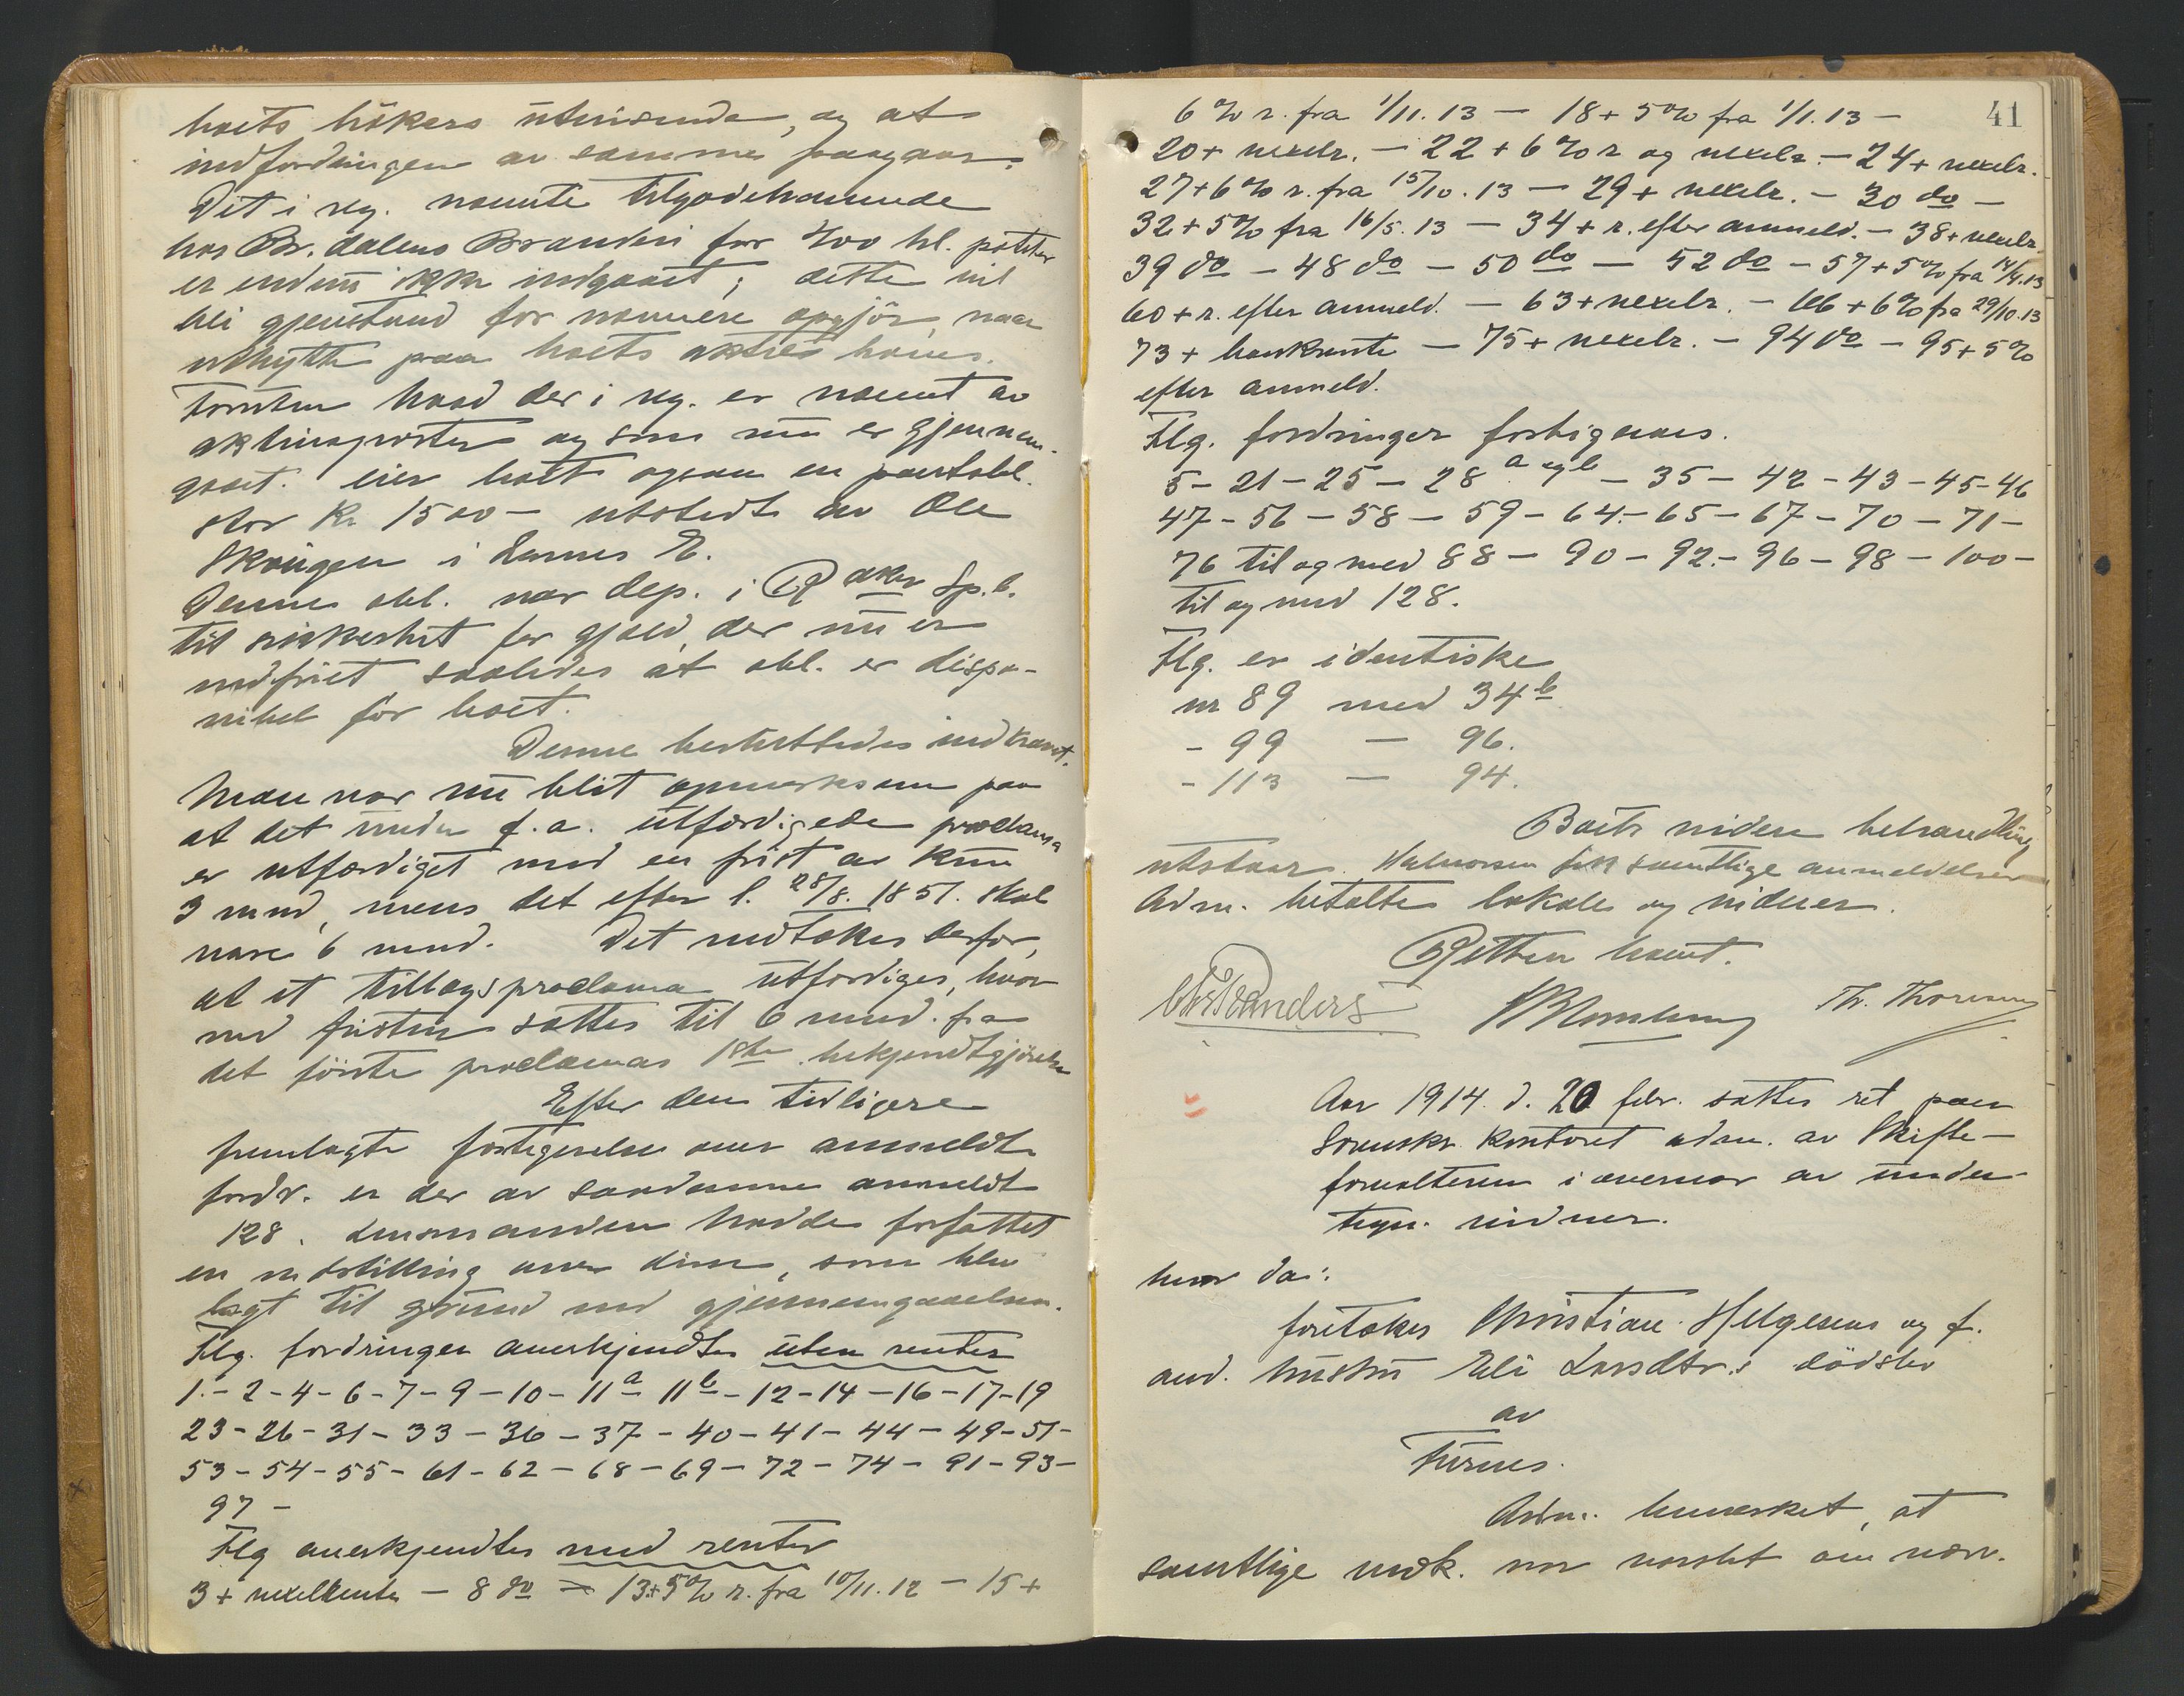 boets bökers utvisende, og at
inddrivelsen av samme paagaar.
Det i reg. nævnte tilgodehavende
hos Br. dalens Brænderi for 400 hl. poteter
er endnu ikke indgaaet; dette vil
bli gjenstand for nærmere opgjör, naar
utbytte paa boets aktier haves.
Foruten hvad der i reg. er nævnt av
aktivaposter og som nu er gjennem-
gaaet. eier boet ogsaa en panteobl.
stor Kr 1500 – utstedt av Ole
Skougen i Furnes E.
Denne obl. var dep. i R aker Sp.b.
til sikkerhet for gjæld, der nu er
indfriet saaledes at obl. er dispo-
nibel for boet.
Denne besluttedes indkrævt.
Man var nu blit opmerksom paa
at det under f.a. utfærdigede proclama
er utfærdiget med en frist av kun
3 mnd, mens det efter l. 28/8. 1851. skal
være 6 mnd. Det vedtokes derfor,
at et tillægsproclama utfærdiges, hvor
ved fristen sættes til 6 mnd. fra
det förste proclamas 1ste bekjendtgjörelse
Efter den tidligere
fremlagte fortegnelse over anmeldte
fordr. er der av saadanne anmeldt
128. Lensmanden hadde forfattet
en indstilling over disse, som blev
lagt til grund ved gjennemgaaelsen.
Flg. fordringer anerkjendtes uten renter
1 – 2 – 4 – 6 – 7 – 9 – 10 – 11a 11b – 12 – 14 – 16 – 17 – 19
23 – 26 – 31 – 33 – 36 – 37 – 40 – 41 – 44 – 49 – 51 –
53 – 54 – 55 – 61 – 62 – 68 – 69 – 72 – 74 – 91 – 93 –
97 –
Flg anerkjendtes med renter
3 + vexelrente – 8 do – 13 + 5% r. fra 10/11. 12 – 15 +
41
6% r. fra 1/11. 13 – 18 + 5% fra 1/1. 13 –
20 + vexelr. – 22 + 6% r og vexelr. – 24 + vexelr.
27 + 6% r. fra 15/10. 13 – 29 + vexelr. – 30 do –
32 + 5% fra 16/5. 13 – 34 + r. efter anmeld. – 38 + vexelr
39 do – 48 do – 50 do – 52 do – 57 + 5% fra 14/4.13
60 + r. efter anmeld. – 63 + vexelr. – 66 + 6% fra 29/10.13
73 + bankrente – 75 + vexelr. – 94 do – 95 + 5%
efter anmeld.
Flg. fordringer forbigaaes.
5 – 21 – 25 – 28 a og b – 35 – 42 – 43 – 45 – 46
47 – 56 – 58 – 59 – 64 – 65 – 67 – 70 – 71 –
76 til og med 88 – 90 – 92 – 96 – 98 – 100 –
til og med 128.
Flg. er identiske
nr 89 med 34b
– 99 — 96.
– 113 — 94.
Boets videre behandling
utstaar. Halvorsen fik samtlige anmeldelser
Adm. betalte lokale og vidner.
Retten hævet.
Th. Thoresen
Aar 1914. d. 20 febr. sattes ret paa
Sorenskr. kontoret adm. av Skifte-
forvalteren i overvær av under-
tegn. vidner.
hvor da:
foretokes Christian Helgesens og f.
avd. hustru Eli Larsdtr.s dödsbo
av
Furnes.
Adm. bemerket, at
samtlige vedk. var varslet om nærv.